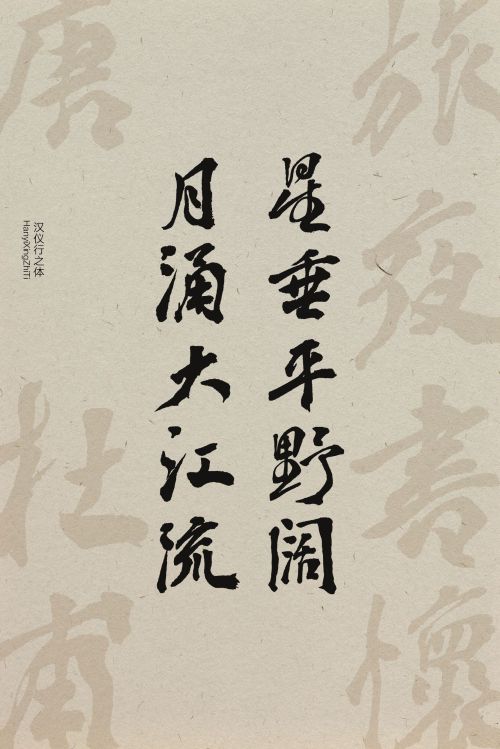 旅夜書懷
星垂平野阔
月涌大江流
唐
杜甫
汉仪行之体
HanyiXingZhiTi